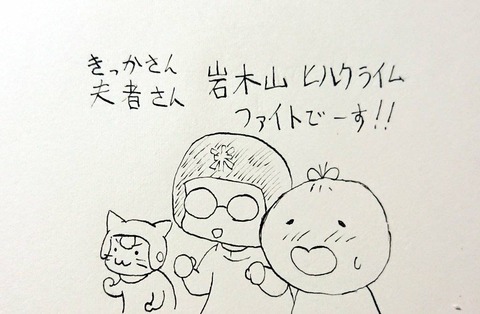 きっかさん
夫者さん
岩木山 ヒルクライム
ファイトでーす!!
米